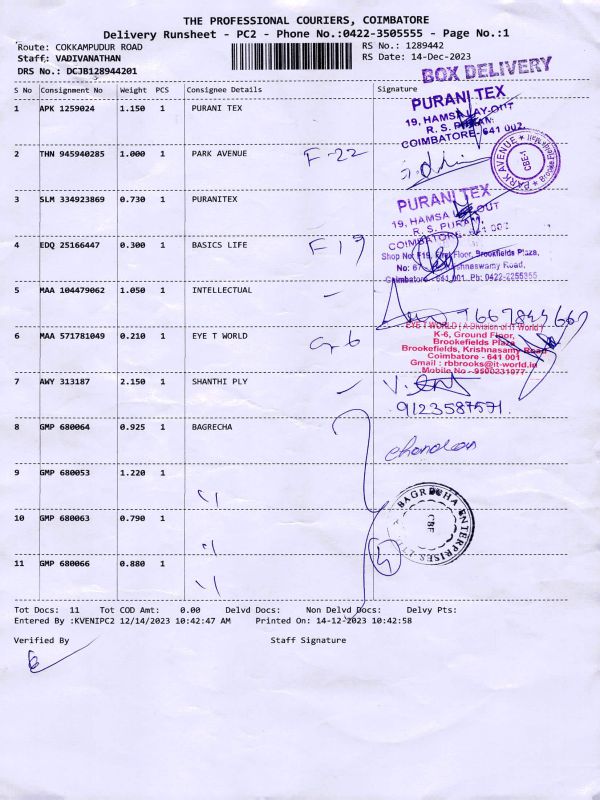 THE PROFESSIONAL COURIERS, COIMBATORE
Delivery Runsheet - PC2 - Phone No.:0422-3505555 - Page No.:1
Route: COKKAMPUDUR ROAD
RS No.: 1289442
Staff: VADIVANATHAN
RS Date: 14-Dec-2023
DRS No.: DCJB128944201
BOX DELIVERY
S No Consignment No Weight PCS Consignee Details Signature
1 APK 1259024 1.150 1 PURANI TEX
PURANI TEX
19, HAMSA LAY-OUT
R. S. PURAM,
COIMBATORE-641 002
2 THN 945940285 1.000 1 PARK AVENUE F-22
PARK AVENUE
CBE-1
3 SLM 334923869 0.730 1 PURANITEX
PURANI TEX
19, HAMSA LAY-OUT
R. S. PURAM,
COIMBATORE-641 002
4 EDQ 25166447 0.300 1 BASICS LIFE F19
Shop No: F19, First Floor, Brookfields Plaza,
No: 67 Krishnaswamy Road,
Coimbatore - 641 001. Ph: 0422-2255355
5 MAA 104479062 1.050 1 INTELLECTUAL
6 MAA 571781049 0.210 1 EYE T WORLD G-6
EYE T WORLD (A Division of IT World)
K-6, Ground Floor,
Brookefields Plaza
Brookefields, Krishnasamy Road
Coimbatore - 641 001
Gmail : rbbrooks@it-world.in
Mobile No - 9500231977
7 AWY 313187 2.150 1 SHANTHI PLY
9123587571
8 GMP 680064 0.925 1 BAGRECHA
chandan
9 GMP 680053 1.220 1 "
BAGRECHA ENTERPRISES LTD
CBE
10 GMP 680063 0.790 1 "
11 GMP 680066 0.880 1 "
Tot Docs: 11 Tot COD Amt: 0.00 Delvd Docs: Non Delvd Docs: Delvy Pts:
Entered By :KVENIPC2 12/14/2023 10:42:47 AM Printed On: 14-12-2023 10:42:58
Verified By Staff Signature